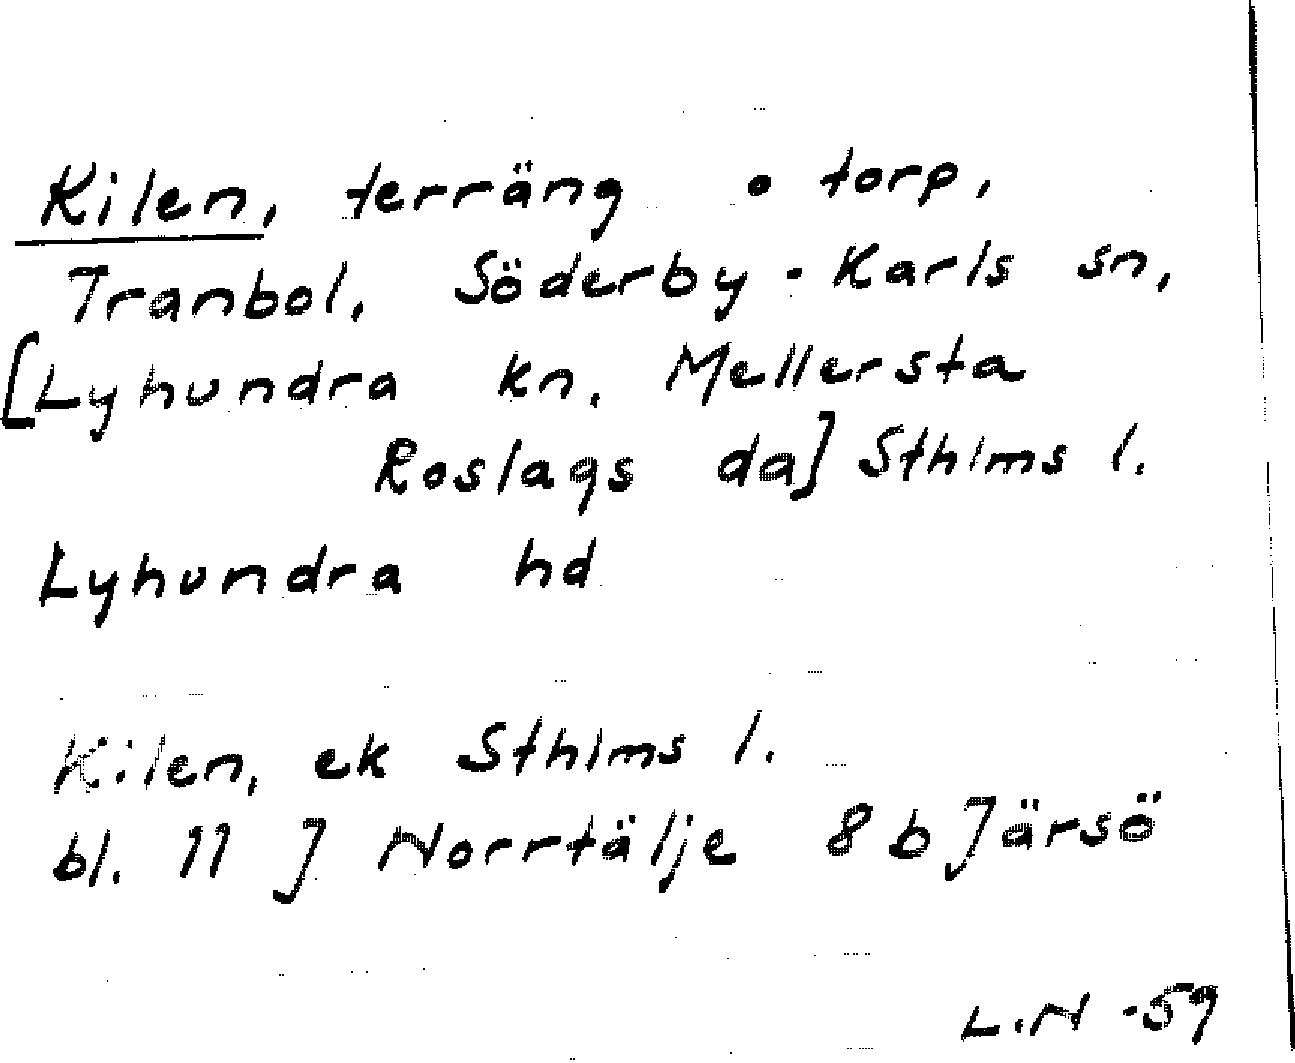 Kilen, terräng o torp,
Tranbol, Söderby-Karls sn,
[Lyhundra kn, Mellersta
Roslags da] Sthlms l.
Lyhundra hd
Kilen, ek Sthlms l.
bl. 11 J Norrtälje 8 b Järsö
L.N -59